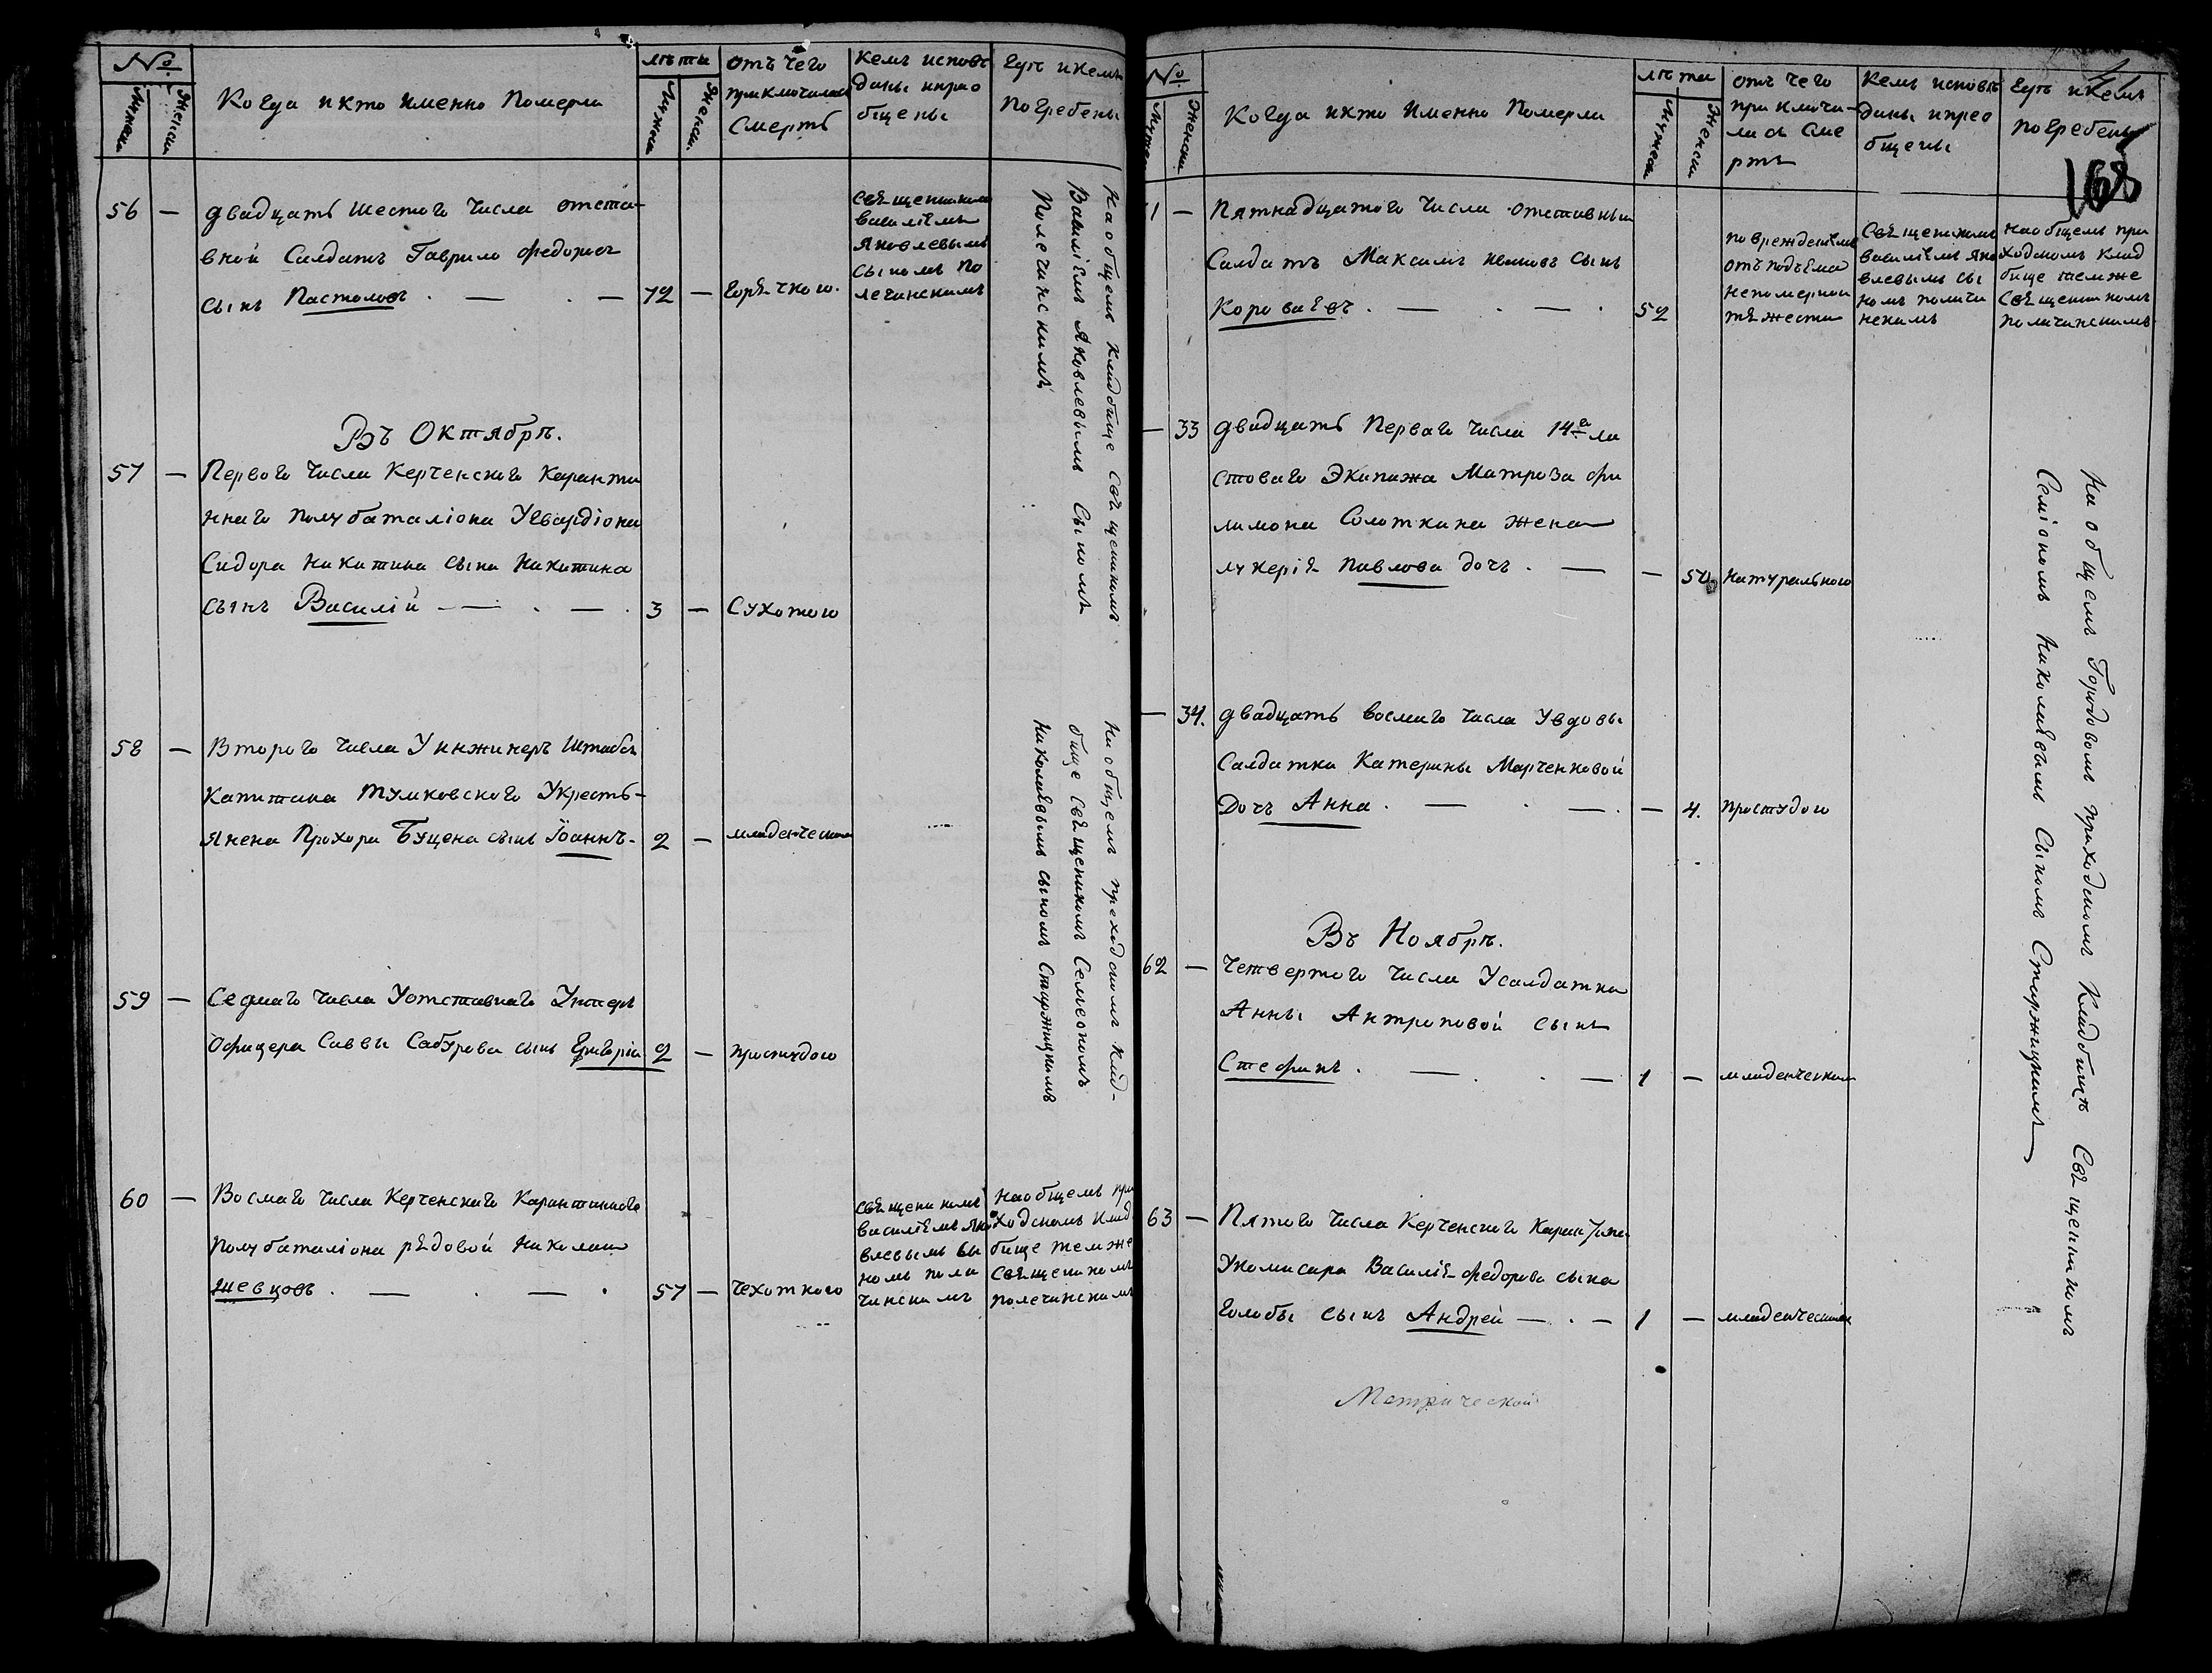 №
мужеска
женска
Когда и кто именно Померли
лѣта
мужеска
женска
отъ чего
приключилась
Смерть
Кемъ исповѣ
даны и прио
бщены
Гдѣ и кемъ
погребены
56 — двадцать шестого числа отста-
вной Салдатъ Гаврило Федоровъ
сынъ Пастоловъ . — . — 72 — горячкою.
Священникомъ
василіемъ
Яковлевымъ
сыномъ по
лечинскимъ
На общемъ кладбище Священникомъ
Василіемъ Яковлевымъ Сыномъ
Полечинскимъ
Въ Октябрѣ.
57 — Первого числа Керченского Каранти
ннаго полубаталіона Угвардіона
Сидора Никитина сына Никитина
сынъ Василій — . — . 3 — Сухотою
58 — Второго числа У инжинеръ Штабсъ
Капитана Тумковского Укресть-
янена Прохора Буцена сынъ Іоаннъ - 2 — младенческою
На общемъ преходскомъ клад-
бище священикомъ Семеономъ
Николаевымъ сыномъ Старжицкимъ
59 — Седмаго числа Уотставнаго Унтеръ
Офицера Саввы Сабурова сынъ Григорій 2 — простудою
60 — Восмаго числа Керченскаго Карантинного
полубаталіона рядовой Николай
Шевцовъ . — . — . 57 — чехоткою
священикомъ
василіемъ Яко
влевымъ сы
номъ поле
чинскимъ
на общемъ при
ходскомъ клад
бище темже
Священикомъ
полечинскимъ
№
муже
женска
Когда и кто Именно Померли
лѣта
мужеска
женска
отъ чего
приключи-
лась Сме
рть
Кемъ исповѣ
даны и прео
бщены
Гдѣ и кемъ
погребены
168
1 — Пятнадцатого числа отставный
Салдатъ Максимъ Ивановъ Сынъ
Короваевъ . — . — . 52
поврежденіемъ
отъ подъема
непомерной
тяжести
Священикомъ
василіемъ Яко
влевымъ сы
номъ полечи
нскимъ
на общемъ при
ходскомъ клад
бище темже
Священикомъ
полечинскимъ
— 33 двадцать Перваго числа 14го ла
стоваго Экипажа Матроза фи
лимона Солоткина жена
лукерія Павлова дочъ . — — 50. натурального
— 34. двадцать восмаго числа Увдовы
Салдатки Катерины Марченковой
Дочъ Анна . — . — . — 4. простудою
На общемъ Городовомъ приходскомъ Кладбищѣ Священикомъ
Семіономъ Николаевымъ Сыномъ Старжицкимъ
Въ Ноябрѣ.
62 — Четвертого числа Усалдатки
Анны Антроповой сынъ
Стефанъ . — . . — 1 — младенческою
63 — Пятого числа Керченского Карантина
Укомисара Василія федорова сына
Голобы сынъ Андрей — . — 1 — младенческою
Метрической